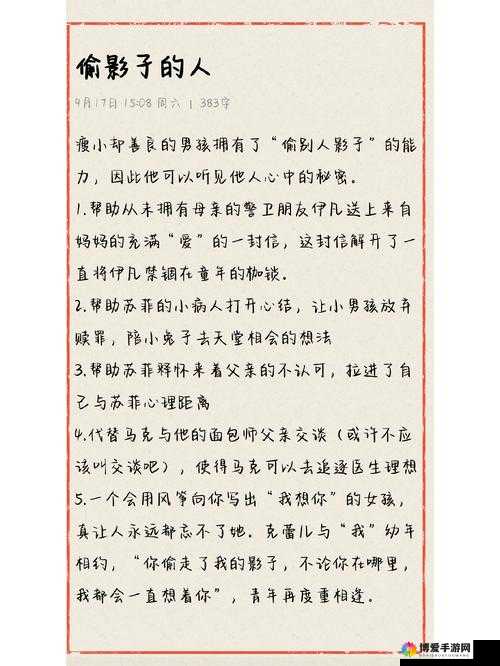 偷影子的人
9月17日 15:08 周六 | 383字
瘦小却善良的男孩拥有了“偷别人影子”的能
力，因此他可以听见他人心中的秘密。
1.帮助从未拥有母亲的警卫朋友伊凡送上来自
妈妈的充满“爱”的一封信，这封信解开了一
直将伊凡禁锢在童年的枷锁。
2.帮助苏菲的小病人打开心结，让小男孩放弃
赎罪，陪小兔子去天堂相会的想法
3.帮助苏菲释怀来着父亲的不认可，拉进了自
己与苏菲心理距离
4.代替马克与他的面包师父亲交谈（或许不应
该叫交谈吧），使得马克可以去追逐医生理想
5.一个会用风筝向你写出“我想你”的女孩，
真让人永远都忘不了她。克蕾儿与“我”幼年
相约，“你偷走了我的影子，不论你在哪里，
我都会一直想着你”，青年再度重相逢。
博爱手游网